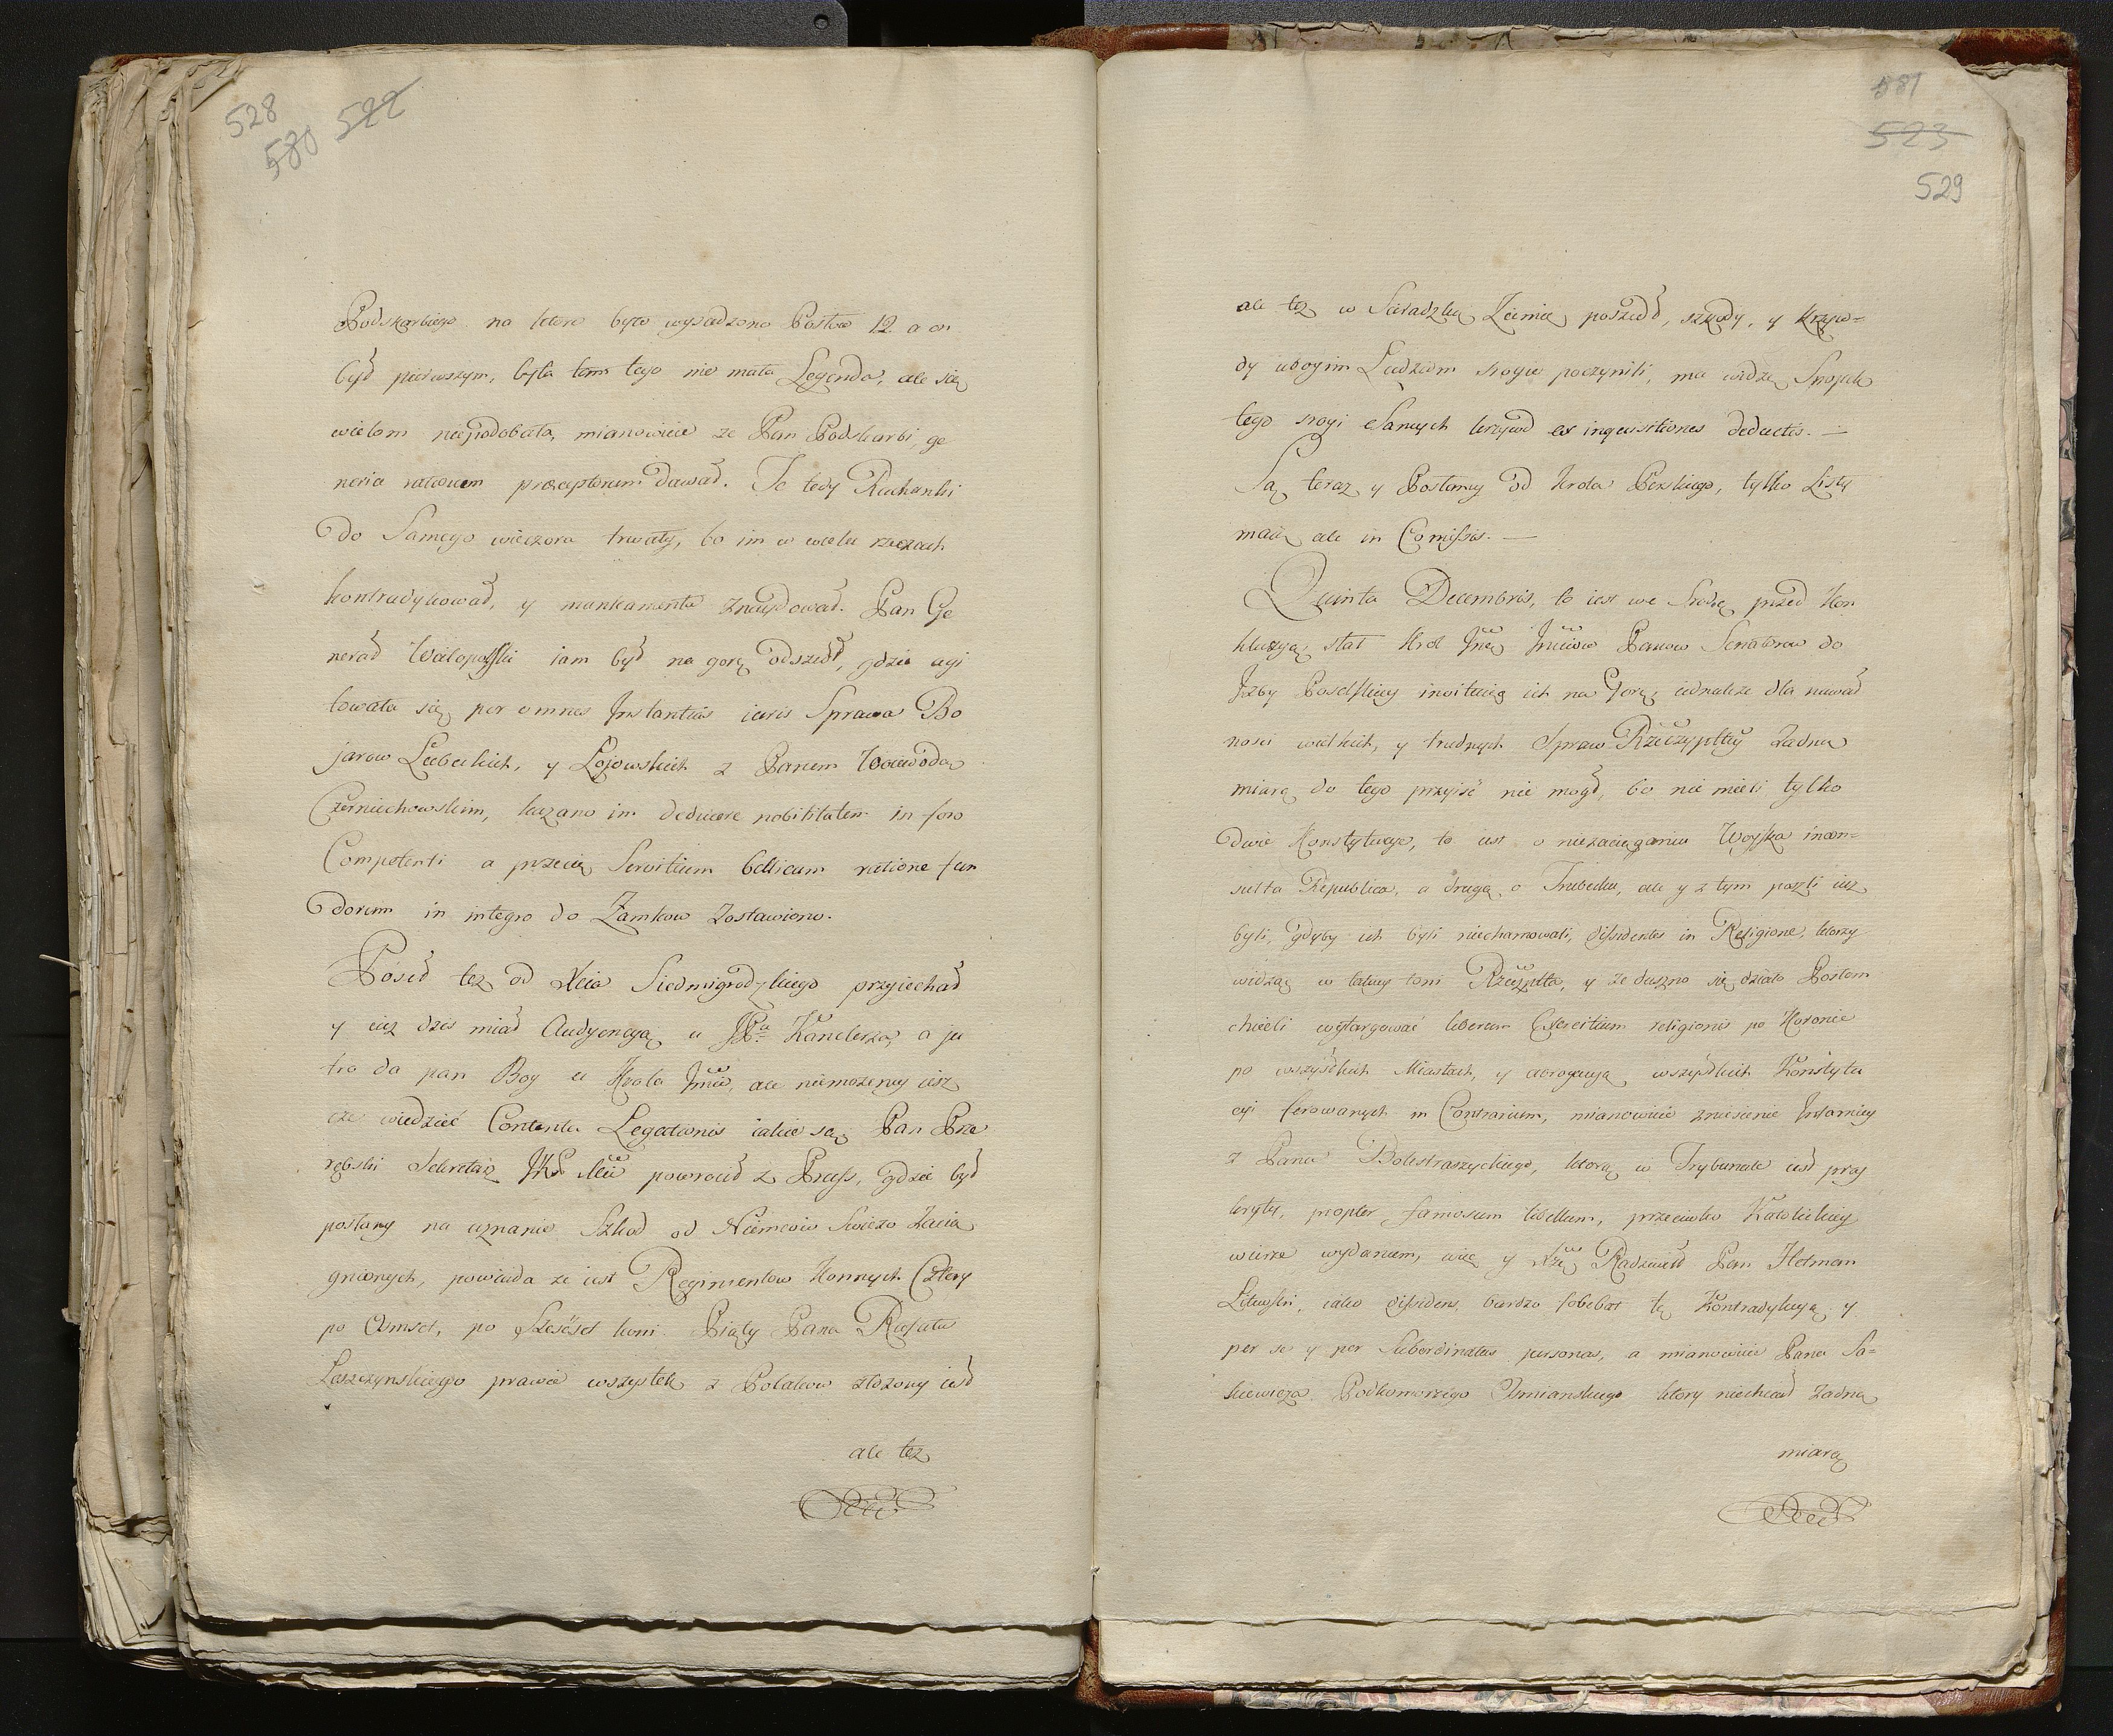 528
580 522
Podskarbiego na ktore było wysadzono Posłow 12 a on
był pierwszym, była tam tego nie mała Legenda, ale się
wielom niepodobała, mianowicie ze Pan Podskarbi ge
neria rationem praeceptorum dawał. Te tedy Rachunki
do Samego wieczora trwały, bo im w wielu rzeczach
kontradykował, y mankamenta znaydował. Pan Ge
nerał Wielopolski iam był na gorę odszedł, gdzie agi
towała się per omnes Instantias iuris Sprawa Bo
jarow Lubeckich, y Łojowskich z Panem Woiewodą
Czerniechowskim, kazano im deducere nobilitatem in foro
Competenti a przecię Servitium bellicum ratione fun
dorum in integro do Zamkow zostawiono.
Poseł tez od Xcia Siedmigrodzkiego przyiechał
y iuz dzis miał Audyencyą u JPa Kanclerza, a ju
tro da pan Bog u Krola Jmci, ale niemozemy iesz
cze wiedzieć Contenta Legationis iakie są Pan Prze
rębski Sekretarz JKMci powrocił z Pruss, gdzie był
posłany na uznanie Szkod od Niemcow swiezo Zacią
gnionych, powiada ze iest Regimentow Konnych Cztery
po Osmset, po Szescset koni. Piąty Pana Rafała
Leszczynskiego prawie wszystek z Polakow złozony iest
ale tez
581
523
529
ale tez w Sieradzką Ziemię poszedł, szkody, y Krzyw=
dy ubogim Ludziom srogie poczynili, ma widzę Snopek
tego srogi Samych krzywd ex inquisitiones deductis. —
Są teraz y Posłowy od Krola Perskiego, tylko Listy
maią ale in Comissis. —
Quinta Decembris, to iest we Srodę przed Kon
kluzyą słał Krol Jmć Jmciow Panow Senatorow do
Jzby Poselskiey invituiąc ich na Gorę, iednakze dla nawał
nosci wielkich, y trudnych Spraw Rzeczyplitey zadną
miarą do tego przyiść nie mogł, bo nie mieli tylko
dwie Konstytucye, to iest o niezaciąganiu Woyska incon=
sulta Republica, a drugą o Trubecku, ale y z tym poszli iuz
byli, gdyby ich byli niehamowali, dissidentes in Religione, ktorzy
widząc w takiey toni Rzeczplta, y ze duszno się działo Posłom
chcieli wytargować liberum Exercitium religionis po Koronie
po wszystkich Miastach, y abrogacyą wszystkich Konstytu
cyi ferowanych in Contrarium, mianowicie zniesienie Infamiey
z Pana Bolestraszyckiego, ktorą w Trybunale iest przy
kryty, propter famosum libellum, przeciwko Katolickiey
wierze wydanem, więc y Xże Radziwiłł Pan Hetman
Litewski, iako dissidens, bardzo fobebat tę Kontradykcyą y
per se y per Subordinatas personas, a mianowicie Pana Sa=
kiewicza Podkomorzego Osmianskiego ktory niechciał zadną
miarą